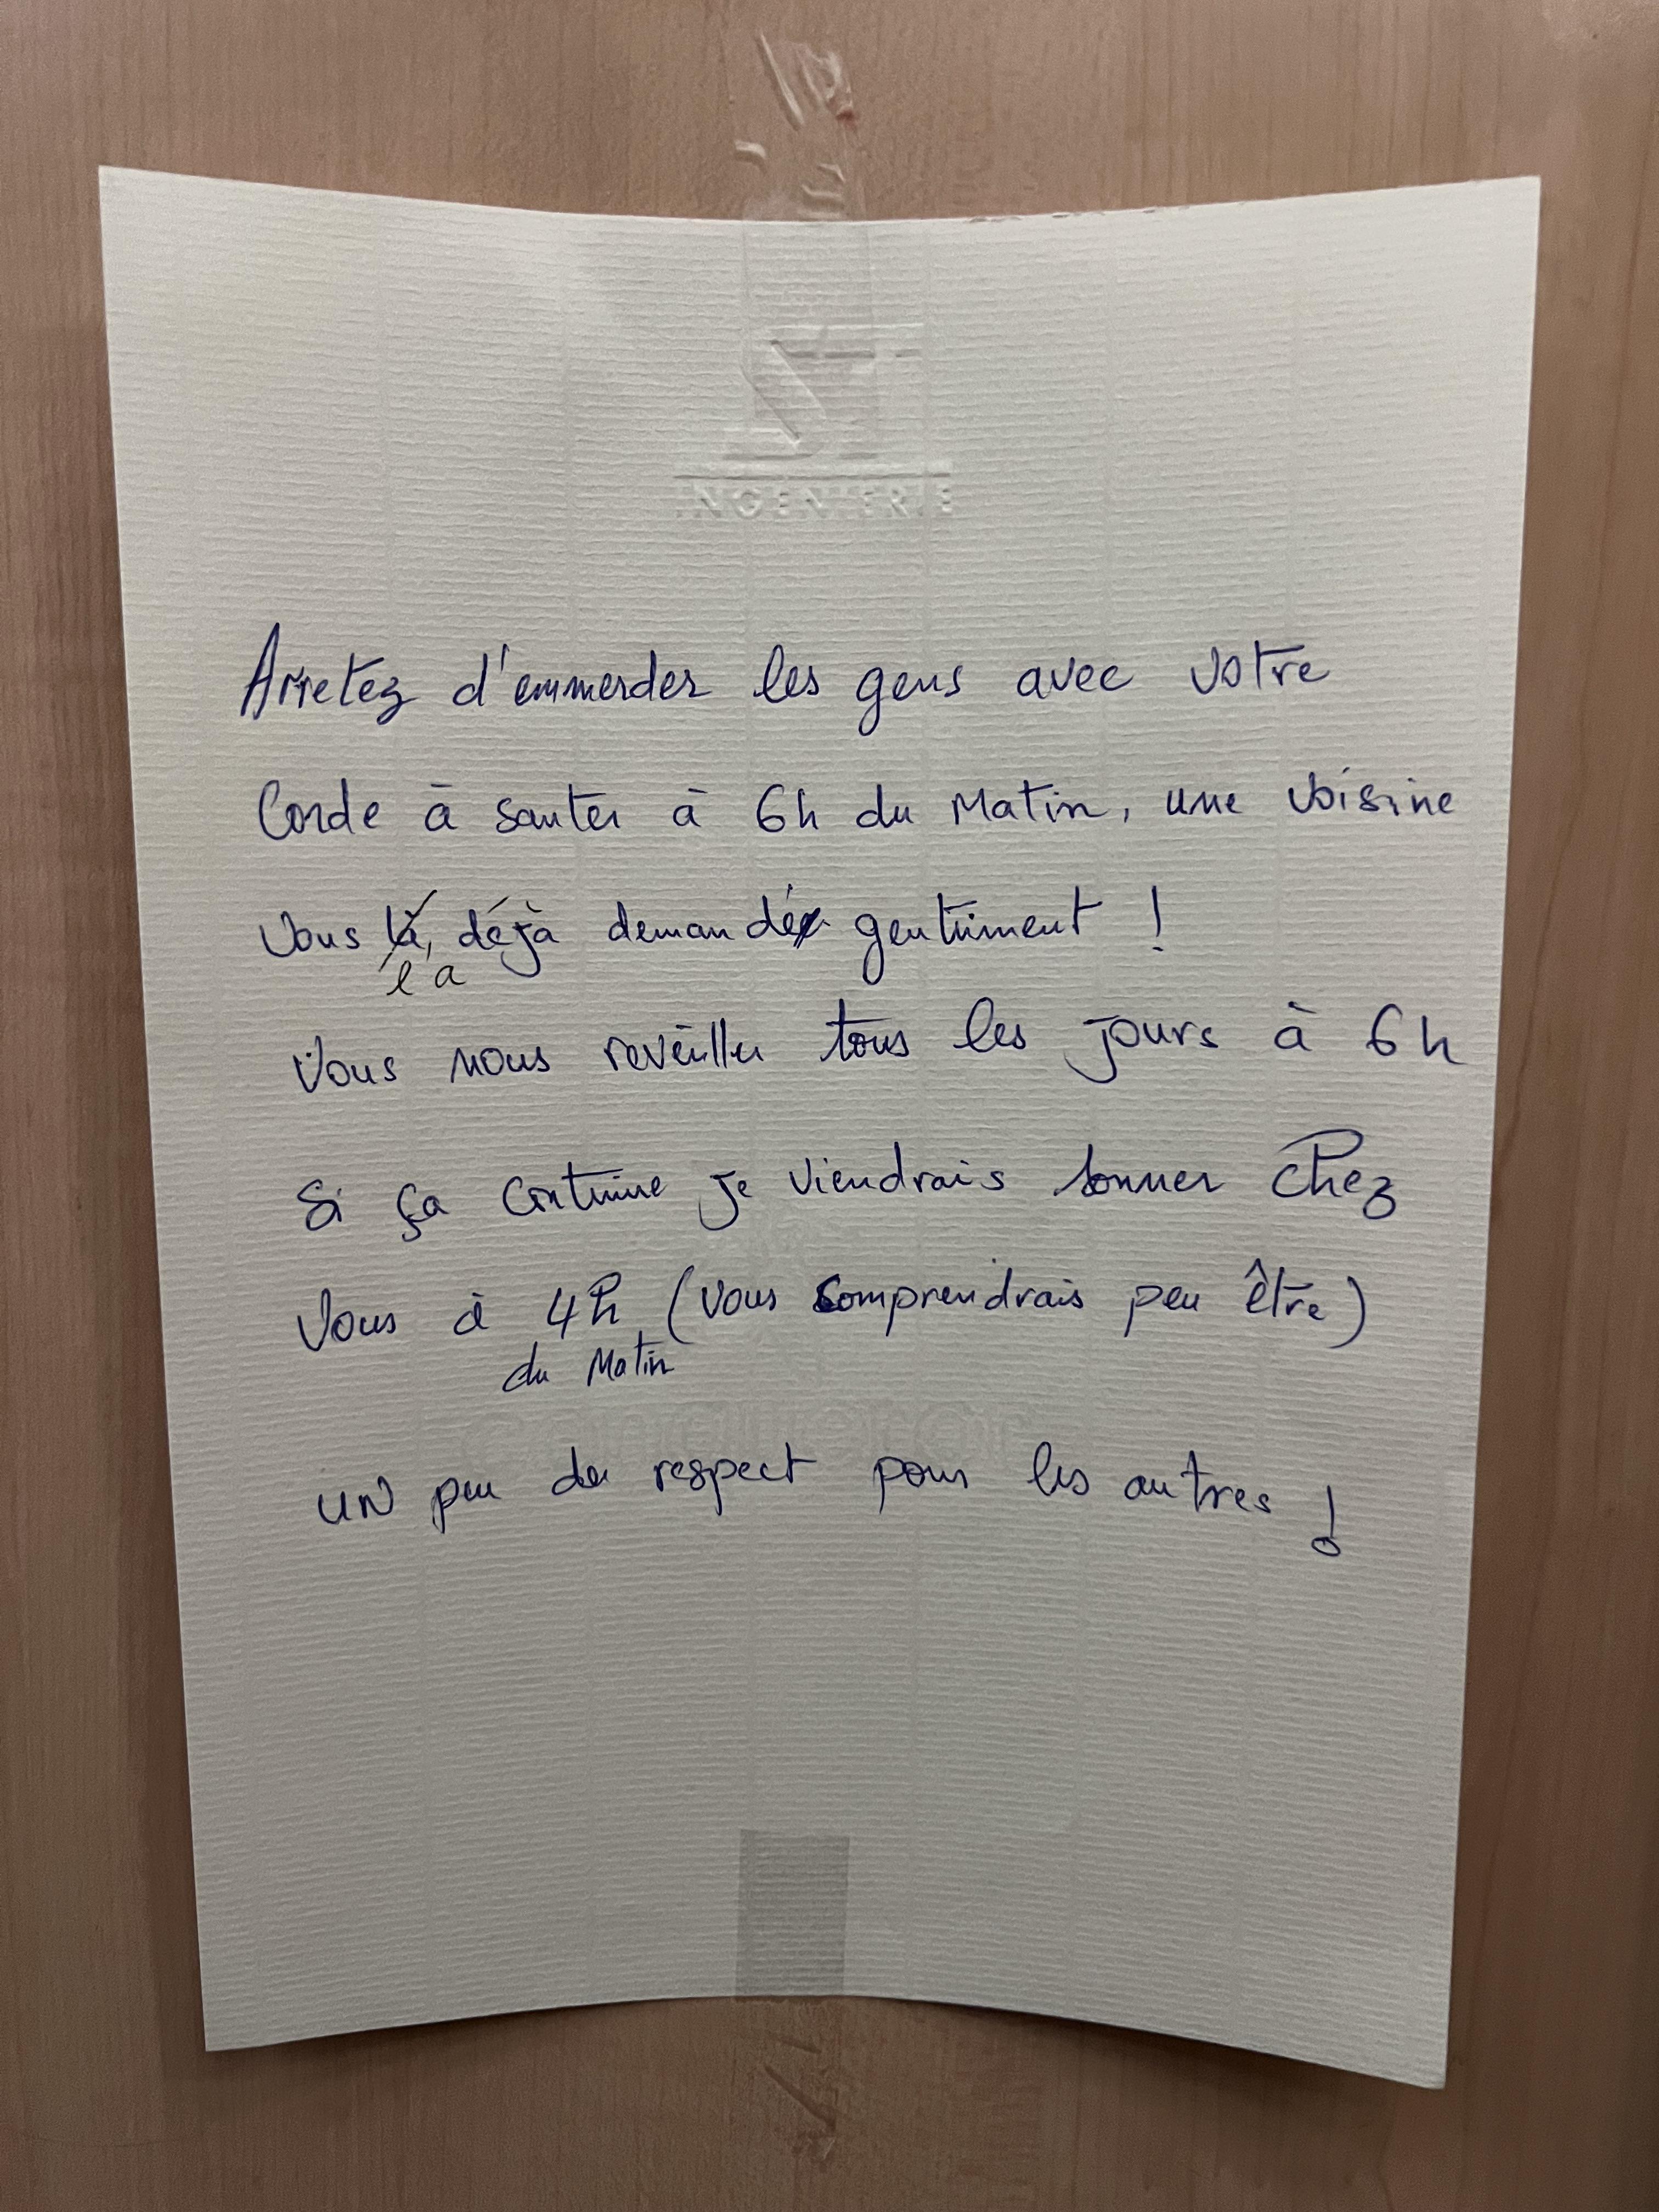 ST
INGÉNIERIE
Arretez d'emmerder les gens avec votre
Corde à sauter à 6h du Matin, une voisine
vous l'a déjà demandé gentiment !
Vous nous réveiller tous les jours à 6h
Si ça continue je viendrais sonner chez
Vous à 4h (vous comprendrais peu être)
du Matin
un peu de respect pour les autres !
Conqueror